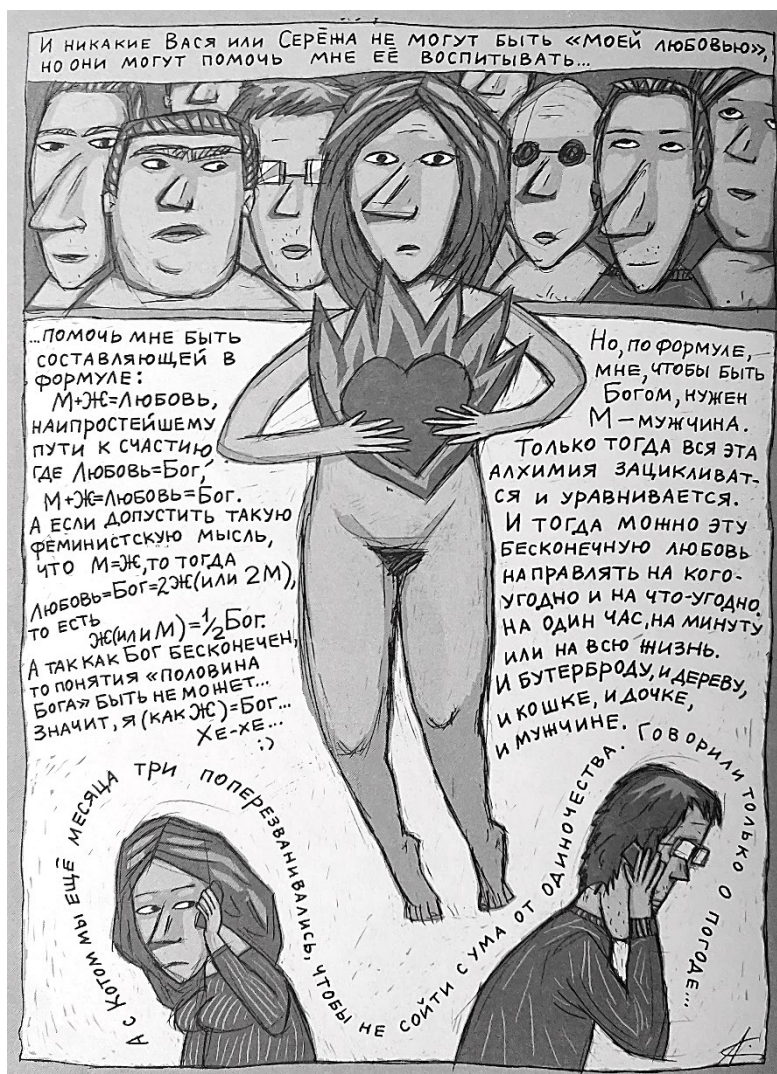 И никакие Вася или Серёжа не могут быть «моей любовью»,
но они могут помочь мне её воспитывать...
...помочь мне быть
составляющей в
формуле:
М+Ж=любовь,
наипростейшему
пути к счастию,
где Любовь=Бог,
М+Ж=любовь=Бог.
А если допустить такую
феминистскую мысль,
что М=Ж, то тогда
любовь=Бог=2Ж(или 2М),
то есть
Ж(или М)=1/2Бог.
А так как Бог бесконечен,
то понятия «половина
Бога» быть не может...
Значит, я (как Ж)=Бог...
Хе-хе...
:)
Но, по формуле,
мне, чтобы быть
Богом, нужен
М — мужчина.
Только тогда вся эта
алхимия зацикливает-
ся и уравнивается.
И тогда можно эту
бесконечную любовь
направлять на кого-
угодно и на что-угодно.
На один час, на минуту
или на всю жизнь.
И бутерброду, и дереву,
и кошке, и дочке,
и мужчине.
А с Котом мы ещё месяца три поперезванивались, чтобы не сойти с ума от одиночества. Говорили только о погоде...